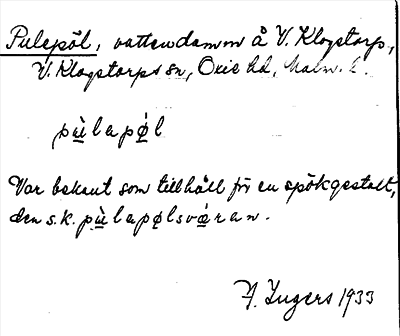 Pulepöl, vattendamm å V. Klagstorp,
V. Klagstorps sn, Oxie hd, Malm. l.
pùlapǿl
Var bekant som tillhåll för en spökgestalt,
den s.k. pùlapølsvǿran.
F. Ingers 1933